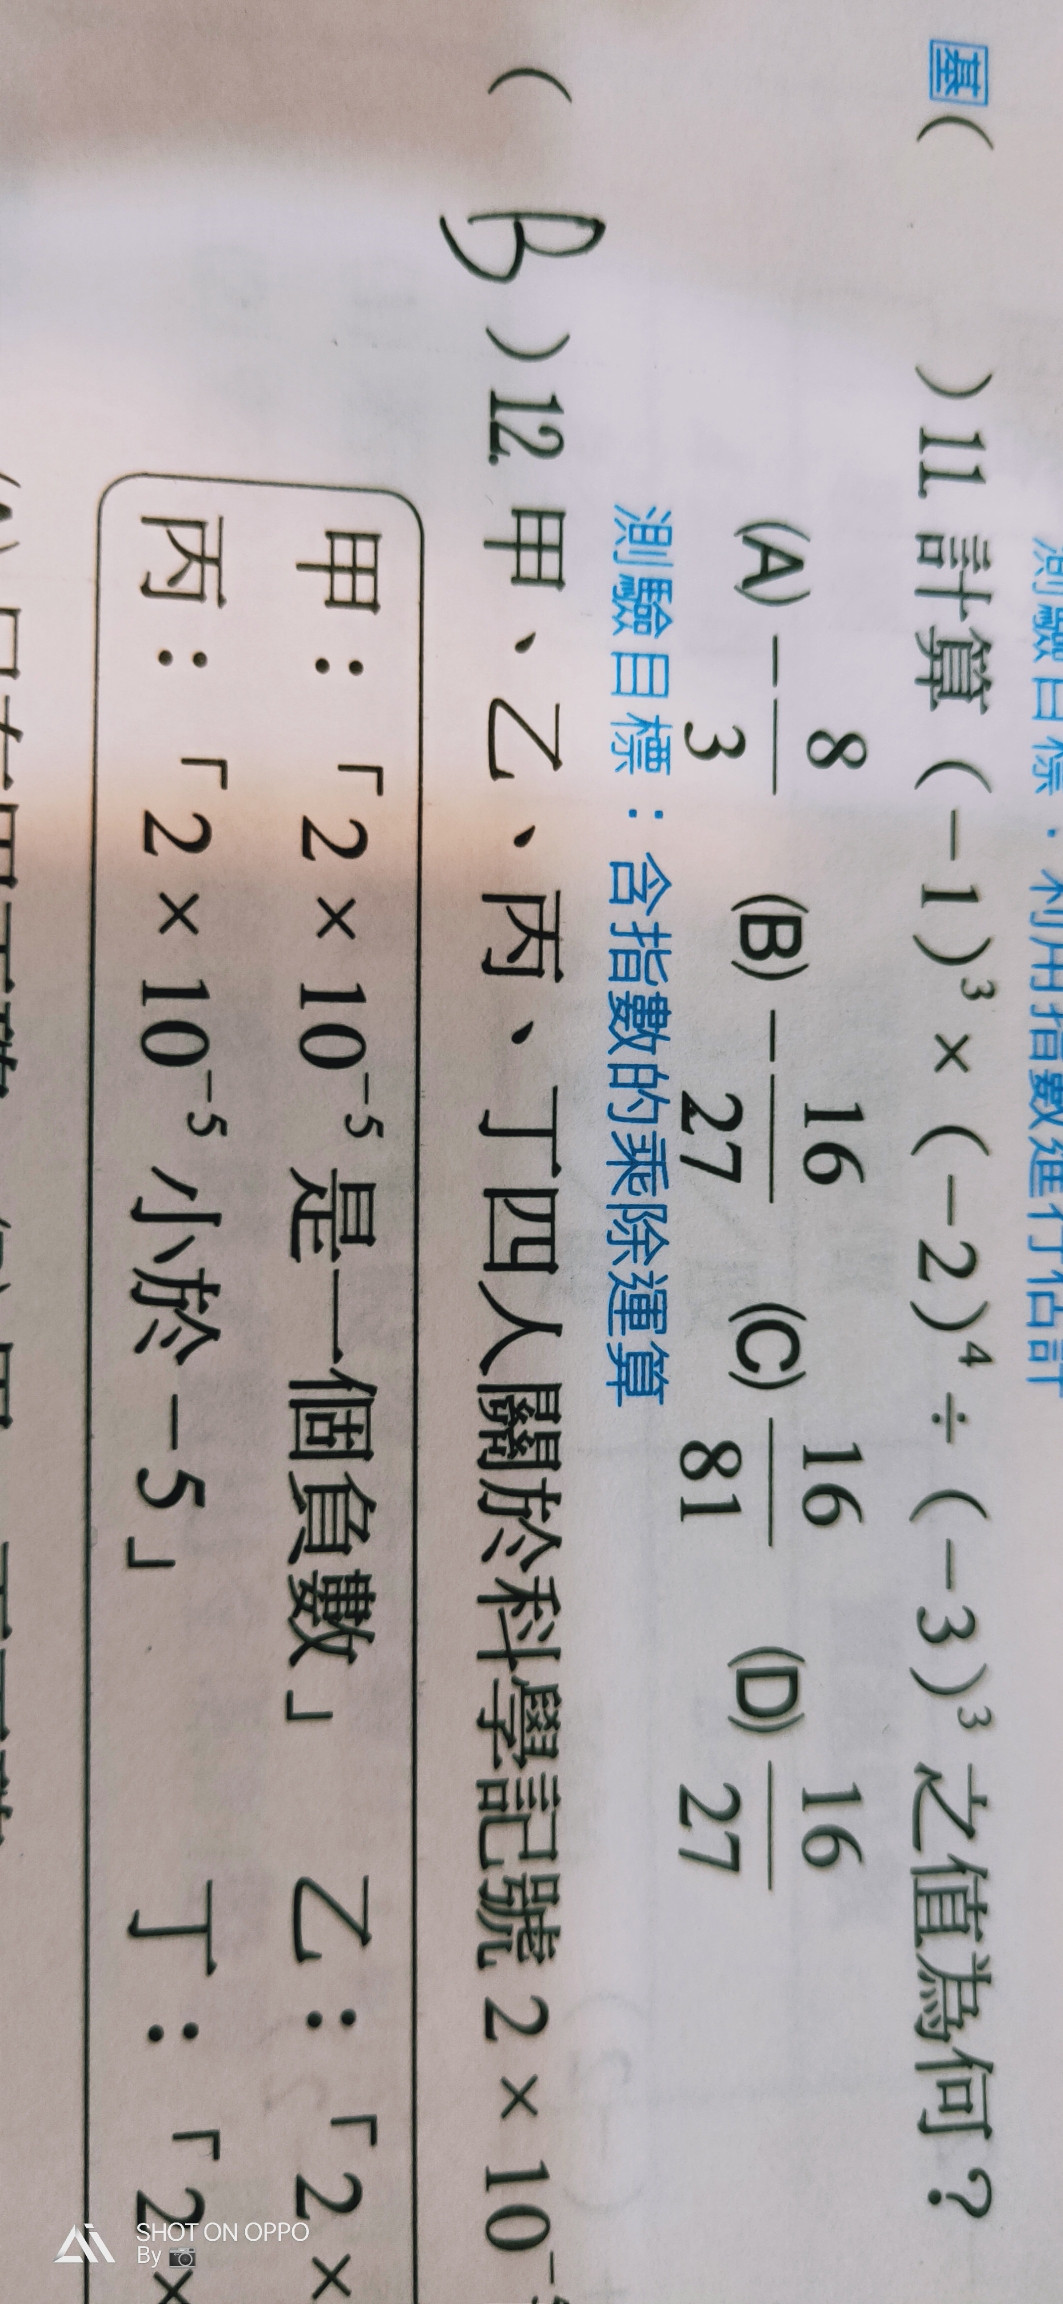 測驗目標：利用指數進行估計
基（　）11. 計算（－1）³×（－2）⁴÷（－3）³之值為何？
(A)－8/3 (B)－16/27 (C)16/81 (D)16/27
測驗目標：含指數的乘除運算
（B）12. 甲、乙、丙、丁四人關於科學記號 2×10⁻
甲：「2×10⁻⁵是一個負數」 乙：「2×
丙：「2×10⁻⁵小於－5」 丁：「2×
SHOT ON OPPO
By